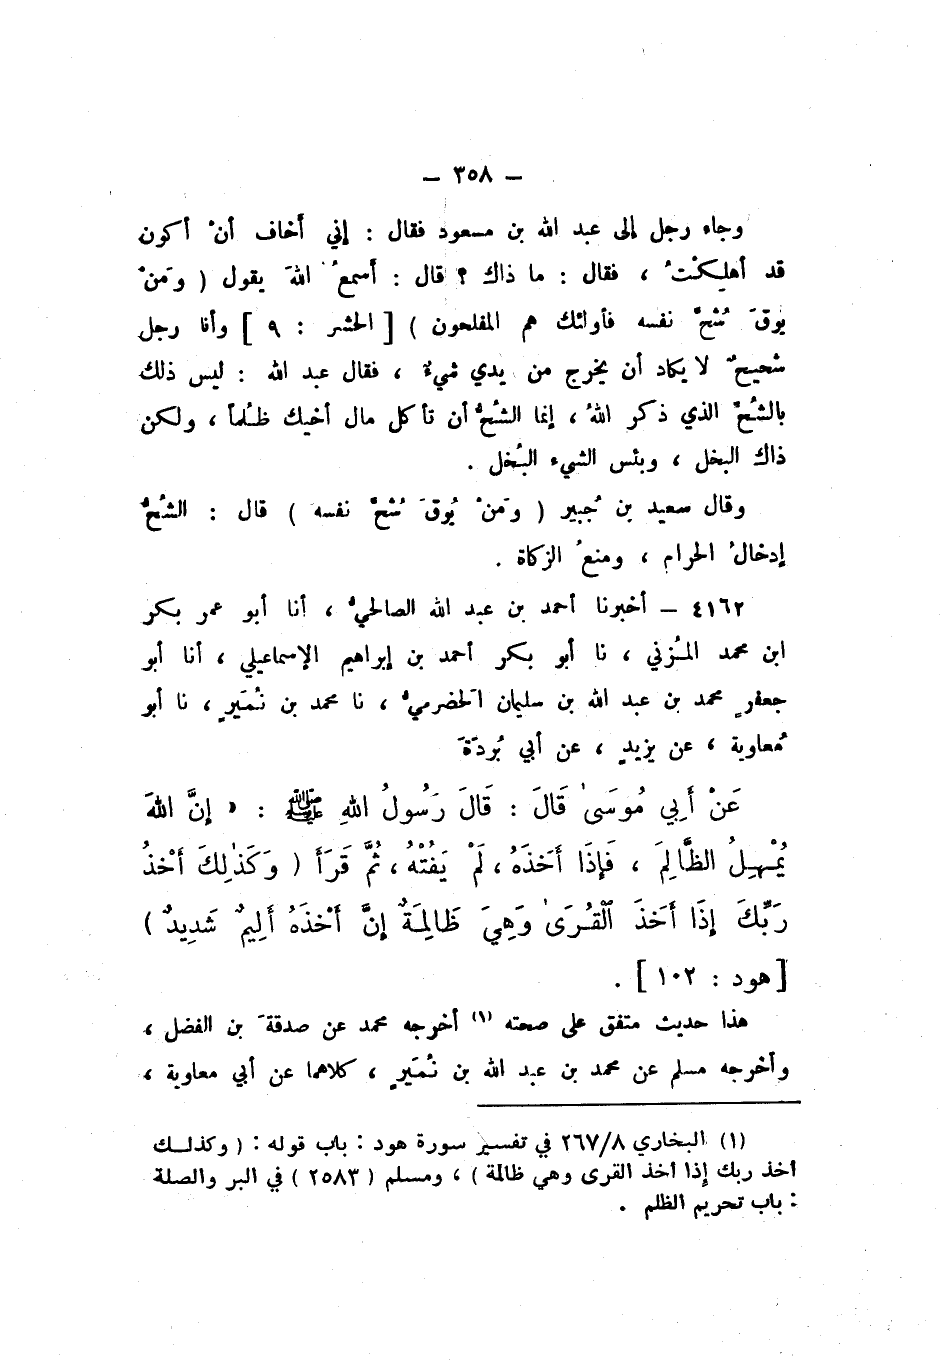 – ٣٥٨ –
وجاء رجل إلى عبد الله بن مسعود فقال : إني أَخاف أنْ أكون
قد أهلِكْتُ ، فقال : ما ذاك ؟ قال : أَسمعُ اللهَ يقول ( وَمَنْ
يوقَ شُحَّ نفسه فأولئك هم المفلحون ) [ الحشر : ٩ ] وأنا رجل
شحيحٌ لا يكاد أن يخرج من يدي شيءٌ ، فقال عبد الله : ليس ذلك
بالشُّحِّ الذي ذكر اللهُ ، إنما الشُّحُّ أن تأكل مال أخيك ظلماً ، ولكن
ذاك البخل ، وبئس الشيء البُخل .
وقال سعيد بن جُبير ( وَمَنْ يُوقَ شُحَّ نفسه ) قال : الشُّحُّ
إدخالُ الحرام ، ومنعُ الزكاة .
٤١٦٢ – أخبرنا أحمد بن عبد الله الصالحيُّ ، أنا أبو عمر بكر
ابن محمد المُزني ، نا أبو بكر أحمد بن إبراهيم الإسماعيلي ، أنا أبو
جعفرٍ محمد بن عبد الله بن سليمان الحَضرميُّ ، نا محمد بن نُمَيرٍ ، نا أبو
مُعاوية ، عن يزيدٍ ، عن أبي بُردَةَ
عَنْ أَبِي مُوسَىٰ قَالَ : قَالَ رَسُولُ اللهِ ﷺ : « إنَّ اللهَ
يُمْهِلُ الظَّالِمَ ، فَإِذَا أَخَذَهُ ، لَمْ يَفُتْهُ ، ثُمَّ قَرَأَ ( وَكَذٰلِكَ أَخْذُ
رَبِّكَ إِذَا أَخَذَ ٱلْقُرَىٰ وَهِيَ ظَالِمَةٌ إنَّ أَخْذَهُ أَلِيمٌ شَدِيدٌ )
[ هود : ١٠٢ ] .
هذا حديث متفق على صحته (١) أخرجه محمد عن صدقةَ بن الفضل ،
وأخرجه مسلم عن محمد بن عبد الله بن نُمَيرٍ ، كلاهما عن أبي معاوية ،
(١) البخاري ٢٦٧/٨ في تفسير سورة هود : باب قوله : ( وكذلك
أخذ ربك إذا أخذ القرى وهي ظالمة ) ، ومسلم ( ٢٥٨٣ ) في البر والصلة
: باب تحريم الظلم .